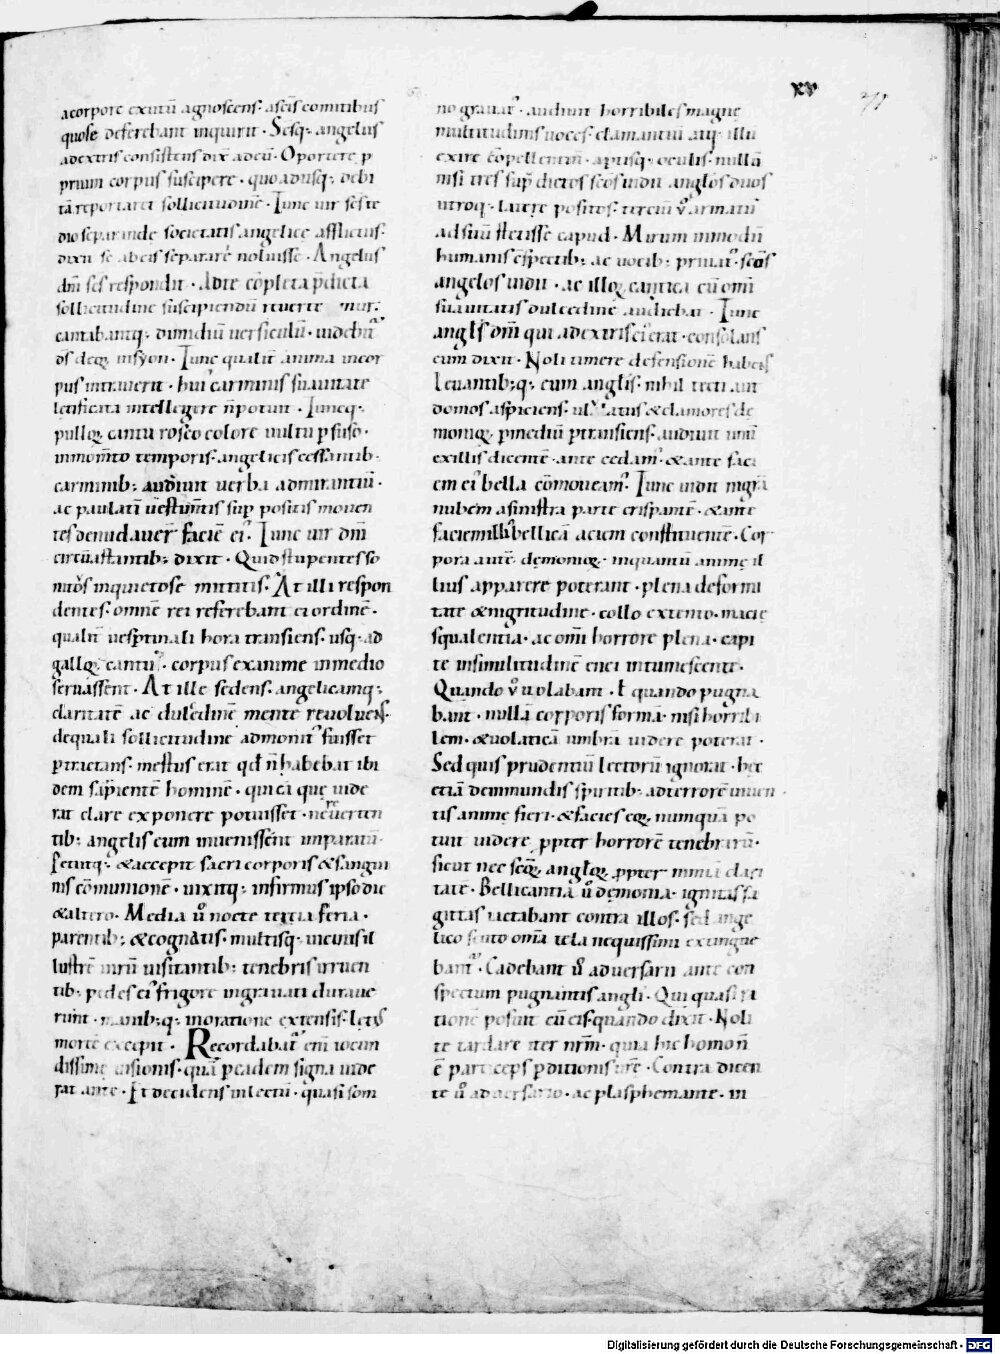 xv
a corpore exutū agnoscens· a scīs comitibus
quo se deferebant inquirit· Sc̄sq; angelus
a dextris consistens dix̄ ad eū· Oportere p
prium corpus suscipere· quo adusq; debi
tā reportaret sollicitudinē· Tunc uir se ste
dio separandę societatis angelicę afflictus·
dixit se ab eis separare noluisse· Angelus
dn̄i sc̄s respondit· Ante cōpleta p̄dicta
sollicitudine suscipiendū
cantabantq; dimidiū uersiculū· uidebit͛
ds̄ deoꝝ in syon· Tunc qualit̄ anima in cor
pus intrauerit· hui' carminis suauitate
lętificata intellegere n̄ potuit· Tuncq;
pulloꝝ cantu roseo colore uultu pfuso·
in momn̄to temporis· angelicis cessantib;
carminib; audiuit uerba admirantiū·
ac paulatī uestimn̄tis sup positis mouen
tes denudauer̄ faciē ei'· Tunc uir dn̄i
circūastantib; dixit· Quid stupentes so
nitōs inquietos emittitis· At illi respon
dentes· omnē rei referebant ei ordinē·
qualit̄ uesptinali hora transiens· usq; ad
galloꝝ cantū· corpus exanime in medio
seruassent· At ille sedens· angelicamq;
claritatē ac dulcedinē mente reuoluens·
de quali sollicitudine admonit' fuisset
ptractans· męstus erat qd n̄ habebat ibi
dem sapientē hominē· qui ea quę uide
rat clare exponere potuisset· ne reuertin
tib; angelis eum inuenissent imparatū·
Petiuitq; & accepit sacri corporis & sangui
nis cōmunionē· uixitq; infirmus ipso die
& altero· Media ū nocte tertia feria·
parentib; & cognatis· multisq; uicinis il
lustrē uirū uisitantib; tenebris irruen
tib; pedes ei' frigore ingrauati duraue
runt· manib;q; in oratione extensis· lętus
morte excepit· Recordabat͛ enī iocun
dissimę uisionis· quā p eadem signa uide
rat ante· Et decidens in lectū· quasi som
no grauat'· audiuit horribiles magnę
multitudinis uoces· clamantiū atq; illū
exire cōpellentiū· aptisq; oculis· nullā
nisi tres sup̄dictos scōs uidit anglōs duos
utroq; latere positos· terciū ū armatū
ad suū stetisse caput· Mirum in modū
humanis cōspectib; ac uocib; priuat'· scōs
angelos uidit· ac illoꝝ cantica cū omī
suauitatis dulcedine audiebat· Tunc
angls̄ dn̄i qui a dextris ei' erat· consolans
eum dixit· Noli timere defensionē habens
Leuantib;q; eum anglis· nihil tecti aut
domos aspiciens· ululatus & clamores de
monioꝝ p mediū ptransiens· audiuit unū
ex illis dicentē· ante cedam'· & ante faci
em ei' bella cōmoueam'· Tunc uidit nigrā
nubem a sinistra parte crispantē· & ante
faciem illi' bellicā aciem constituente· Cor
pora autē demonioꝝ· in quantū animę il
lius apparere poterant· plena deformi
tate & nigritudine· collo extento· macię
squalentia· ac omī horrore plena· capi
te in similitudinē enei intumescente·
Quando ū uolabant· ł quando pugna
bant· nullā corporis formā· nisi horribi
lem· & uolaticā umbrā uidere poterat·
Sed quis prudentiū lectorū ignorat· hęc
etiā de mundis spiritib; ad terrorē iuuen
tis animę fieri· & facies eoꝝ numquā po
tuit uidere· ppter horrorē tenebrarū·
sicut nec scōꝝ angloꝝ ppter nimiā clari
tatē· Bellicantia ū demonia· ignitas sa
gittas iactabant contra illos· sed ange
lico scuto omīa tela nequissimi extingue
bant͛· Cadebant ū aduersarii ante con
spectum pugnantis angli· Qui quasi ra
tionē posuit cū eis· quando dixit· Noli
te tardare iter nr̄m· quia hic homo n̄
ē particeps pditionis ur̄e· Contra dicen
te ū aduersario· ac plasphemante· in
Digitalisierung gefördert durch die Deutsche Forschungsgemeinschaft - DFG